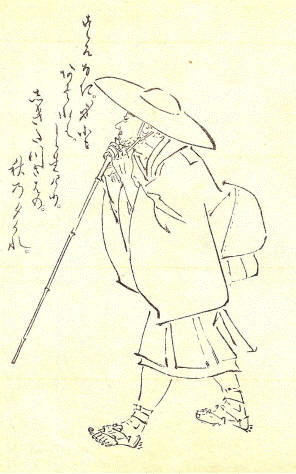 こゝろなき身にも
あはれは
しられけり。
しぎたつさはの。
秋の夕ぐれ。